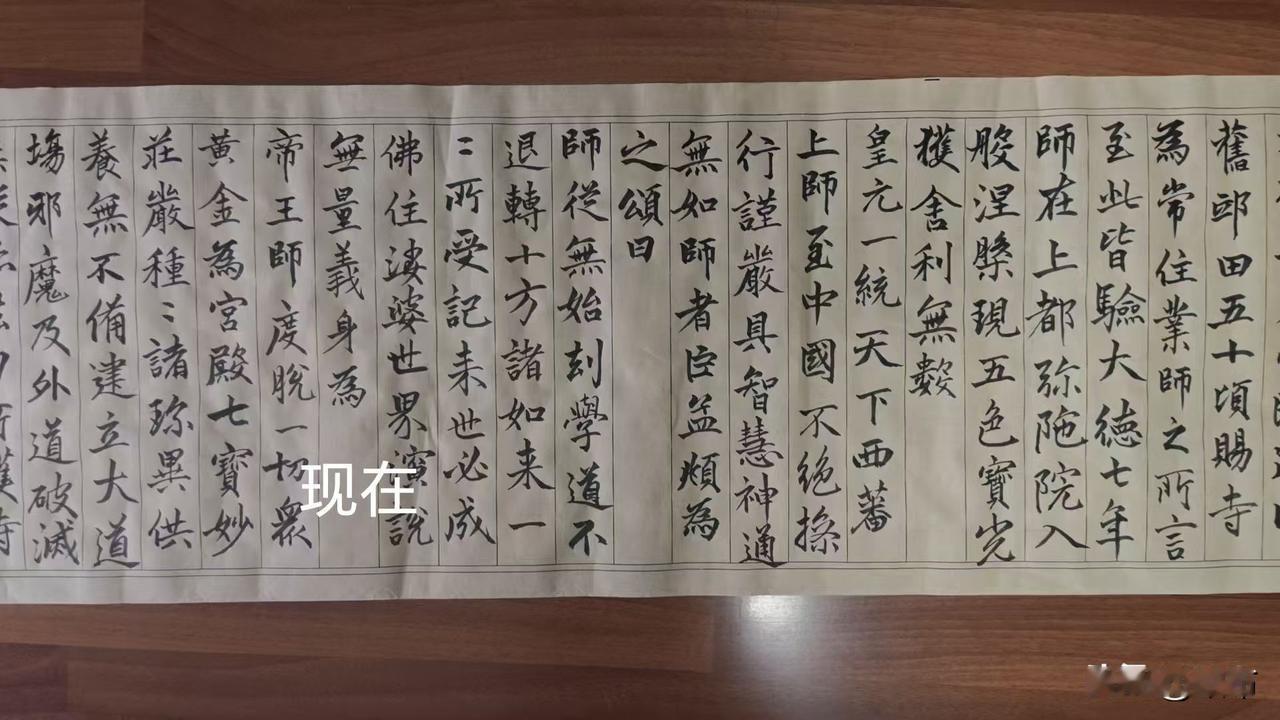 舊邱田五十頃賜寺
為常住業師之所言
至此皆驗大德七年
師在上都弥陁院入
般涅槃現五色寶光
獲舍利無數
皇元一統天下西蕃
上師至中國不絕操
行謹嚴具智慧神通
無如師者臣孟頫為
之頌曰
師從無始刼學道不
退轉十方諸如来一
〻所受記来世必成
佛住娑婆世界演說
無量義身為
帝王師度脫一切衆
黃金為宮殿七寶妙
莊嚴種〻諸珎異供
養無不備建立大道
塲邪魔及外道破滅
现在